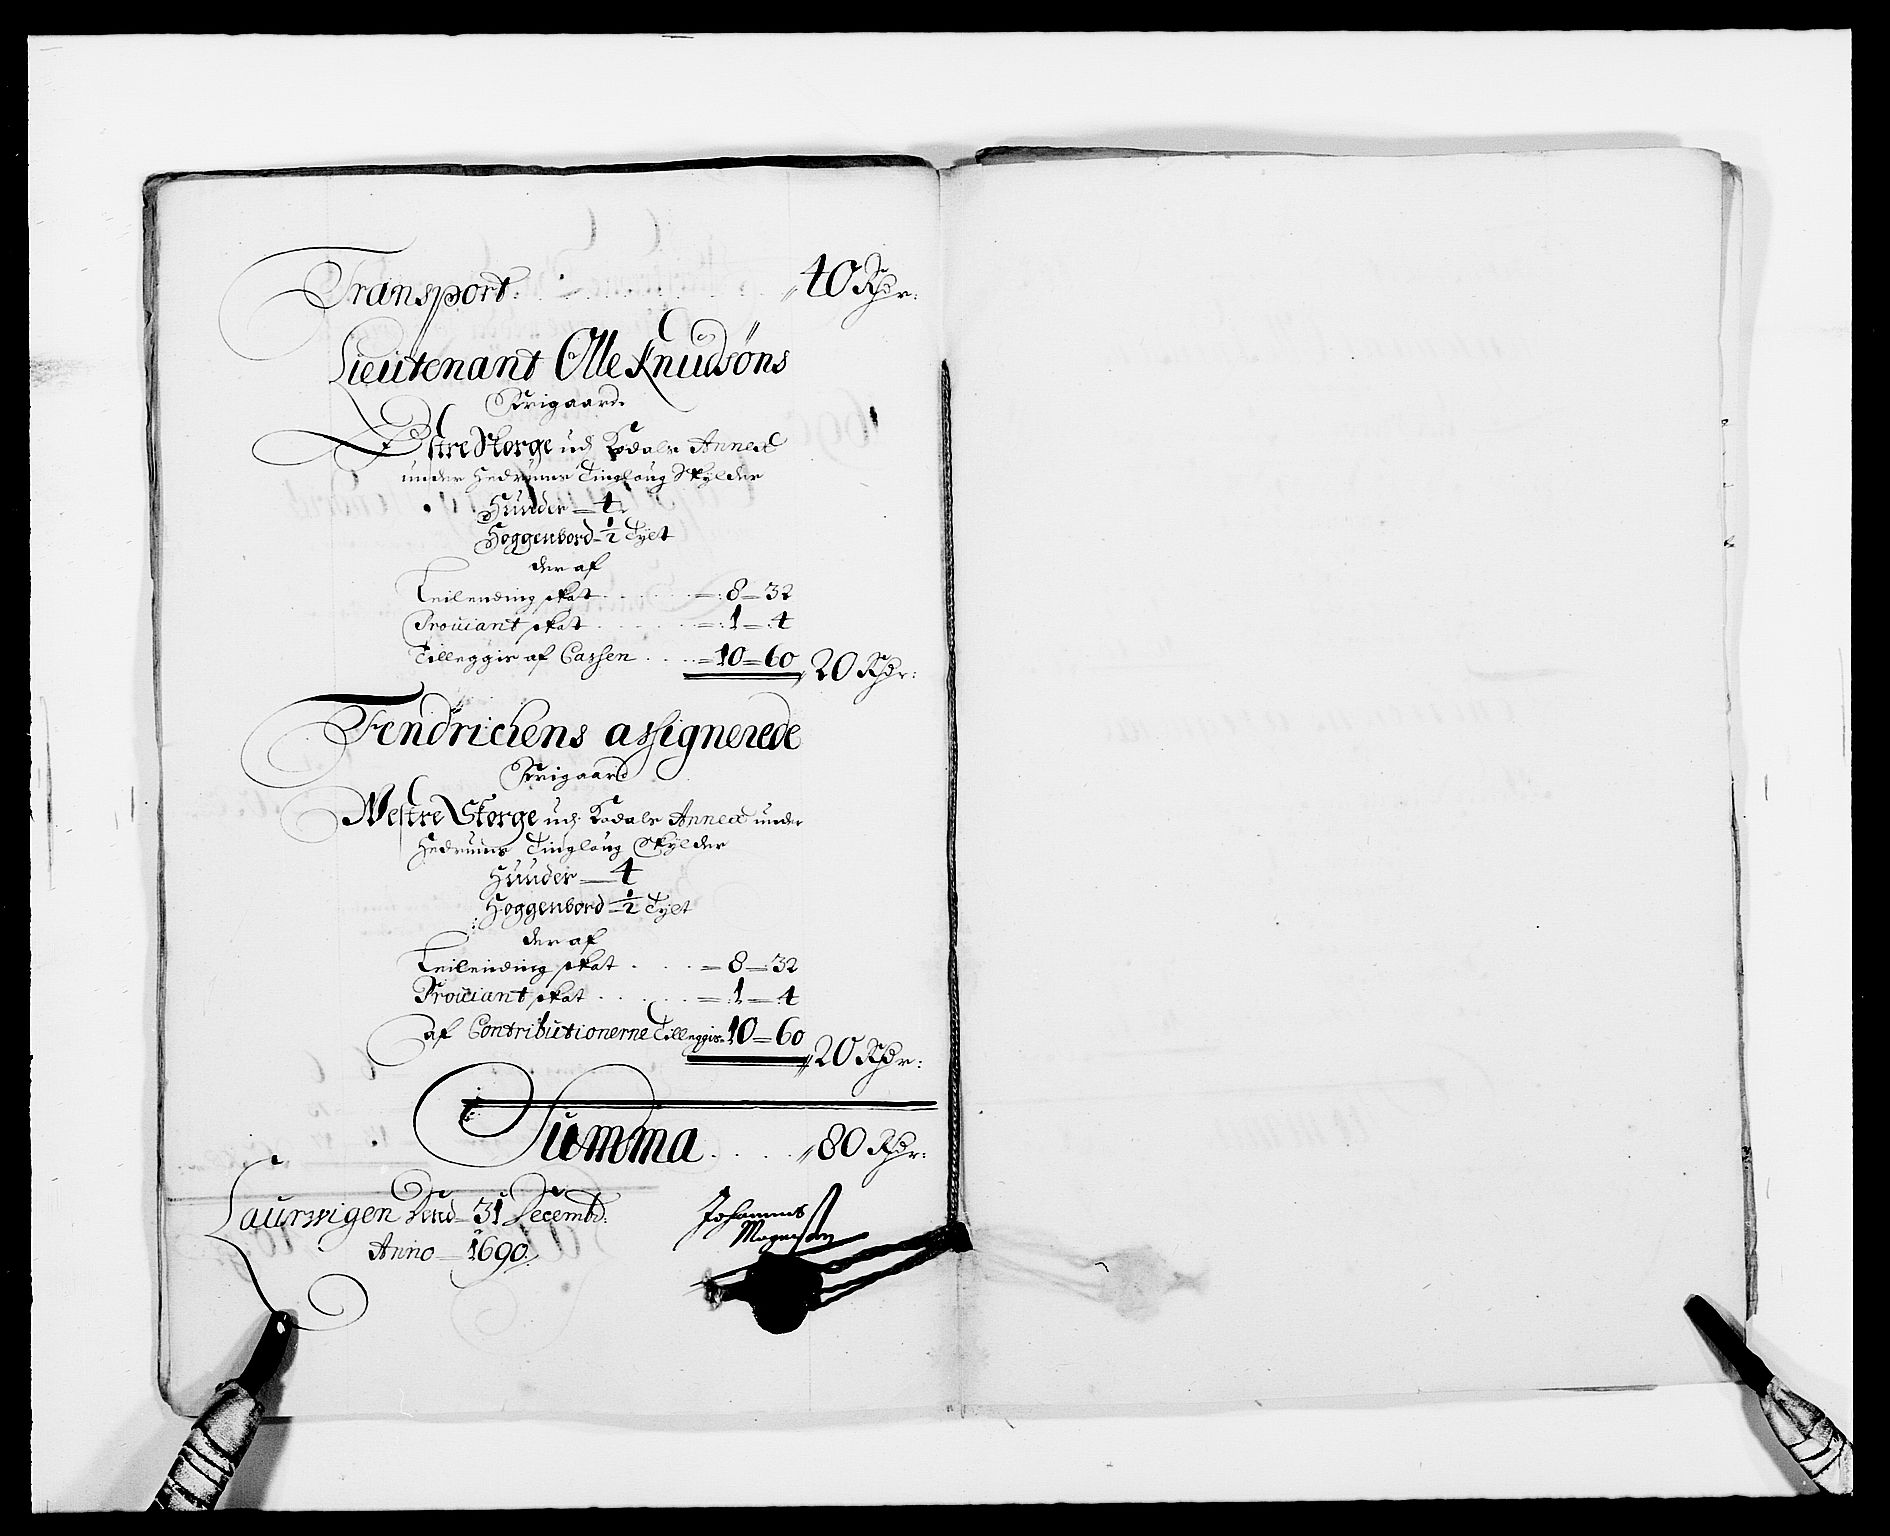 Transport . . . . . . . . . . . 40 Rdr:
Lieutenant Olle Knudsøns
Krigaard.
Østre Storge ud Kodals Annex
under Hedrums Tinglaug Skylder
Hunder — 4.
Høggenbord — ½ Tylt
der af
Leilending skat . . . . . = 8 = 32
Proviant skat . . . . . = 1 = 4
Tilleggis af Cassen . . . . = 10 = 60 20 Rdr:
Fendrichens assignerede
Krigaard
Westre Storge ud Kodals Annex under
Hedrums Tinglaug Skylder
Hunder — 4
Høggenbord — ½ Tylt
der af
Leilending skat . . . = 8 = 32
Proviant skat . . . . = 1 = 4
af Contributionerne Tilleggis = 10 = 60 20 Rdr:
Summa . . . . . 80 Rdr:
Laurwigen dend 31 Decembr:
Anno 1690.
Johannes
Mogensøn